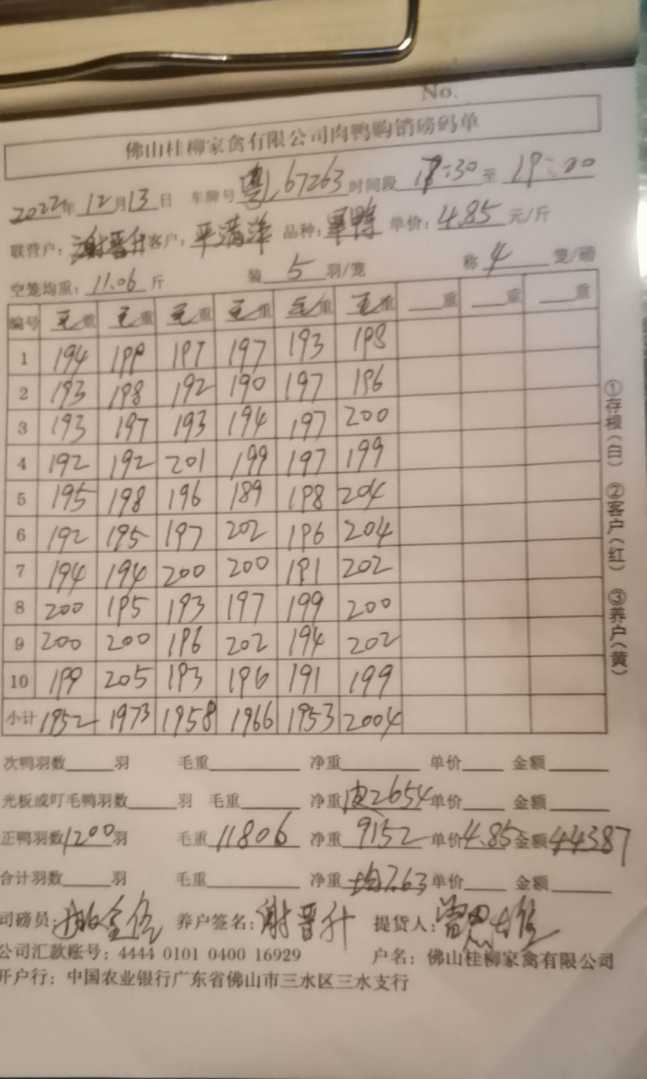 No.
佛山桂柳家禽有限公司肉鸭购销磅码单
2022年12月13日 车牌号粤L67263时间段 18:30至 19:00
联营户:谢晋升客户:平满洋 品种:单鸭 单价:4.85元/斤
空笼均重:11.06斤 装5羽/笼 称4笼/磅
编号 毛重 毛重 毛重 毛重 毛重 毛重 重 重 重
1 194 199 197 197 193 198
2 193 198 192 190 197 196
3 193 197 193 194 197 200
4 192 192 201 199 197 199
5 195 198 196 189 198 204
6 192 195 197 202 196 204
7 194 194 200 200 191 202
8 200 195 193 197 199 200
9 200 200 196 202 194 202
10 199 205 193 196 191 199
小计 1952 1973 1958 1966 1953 2004
①存根(白) ②客户(红) ③养户(黄)
次鸭羽数 羽 毛重 净重 单价 金额
光板或叮毛鸭羽数 羽 毛重 净重皮2654单价 金额
正鸭羽数1200羽 毛重11806 净重9152单价4.85金额44387
合计羽数 羽 毛重 净重均7.63单价 金额
司磅员: 养户签名:谢晋升 提货人:
公司汇款账号:4444 0101 0400 16929 户名:佛山桂柳家禽有限公司
开户行:中国农业银行广东省佛山市三水区三水支行